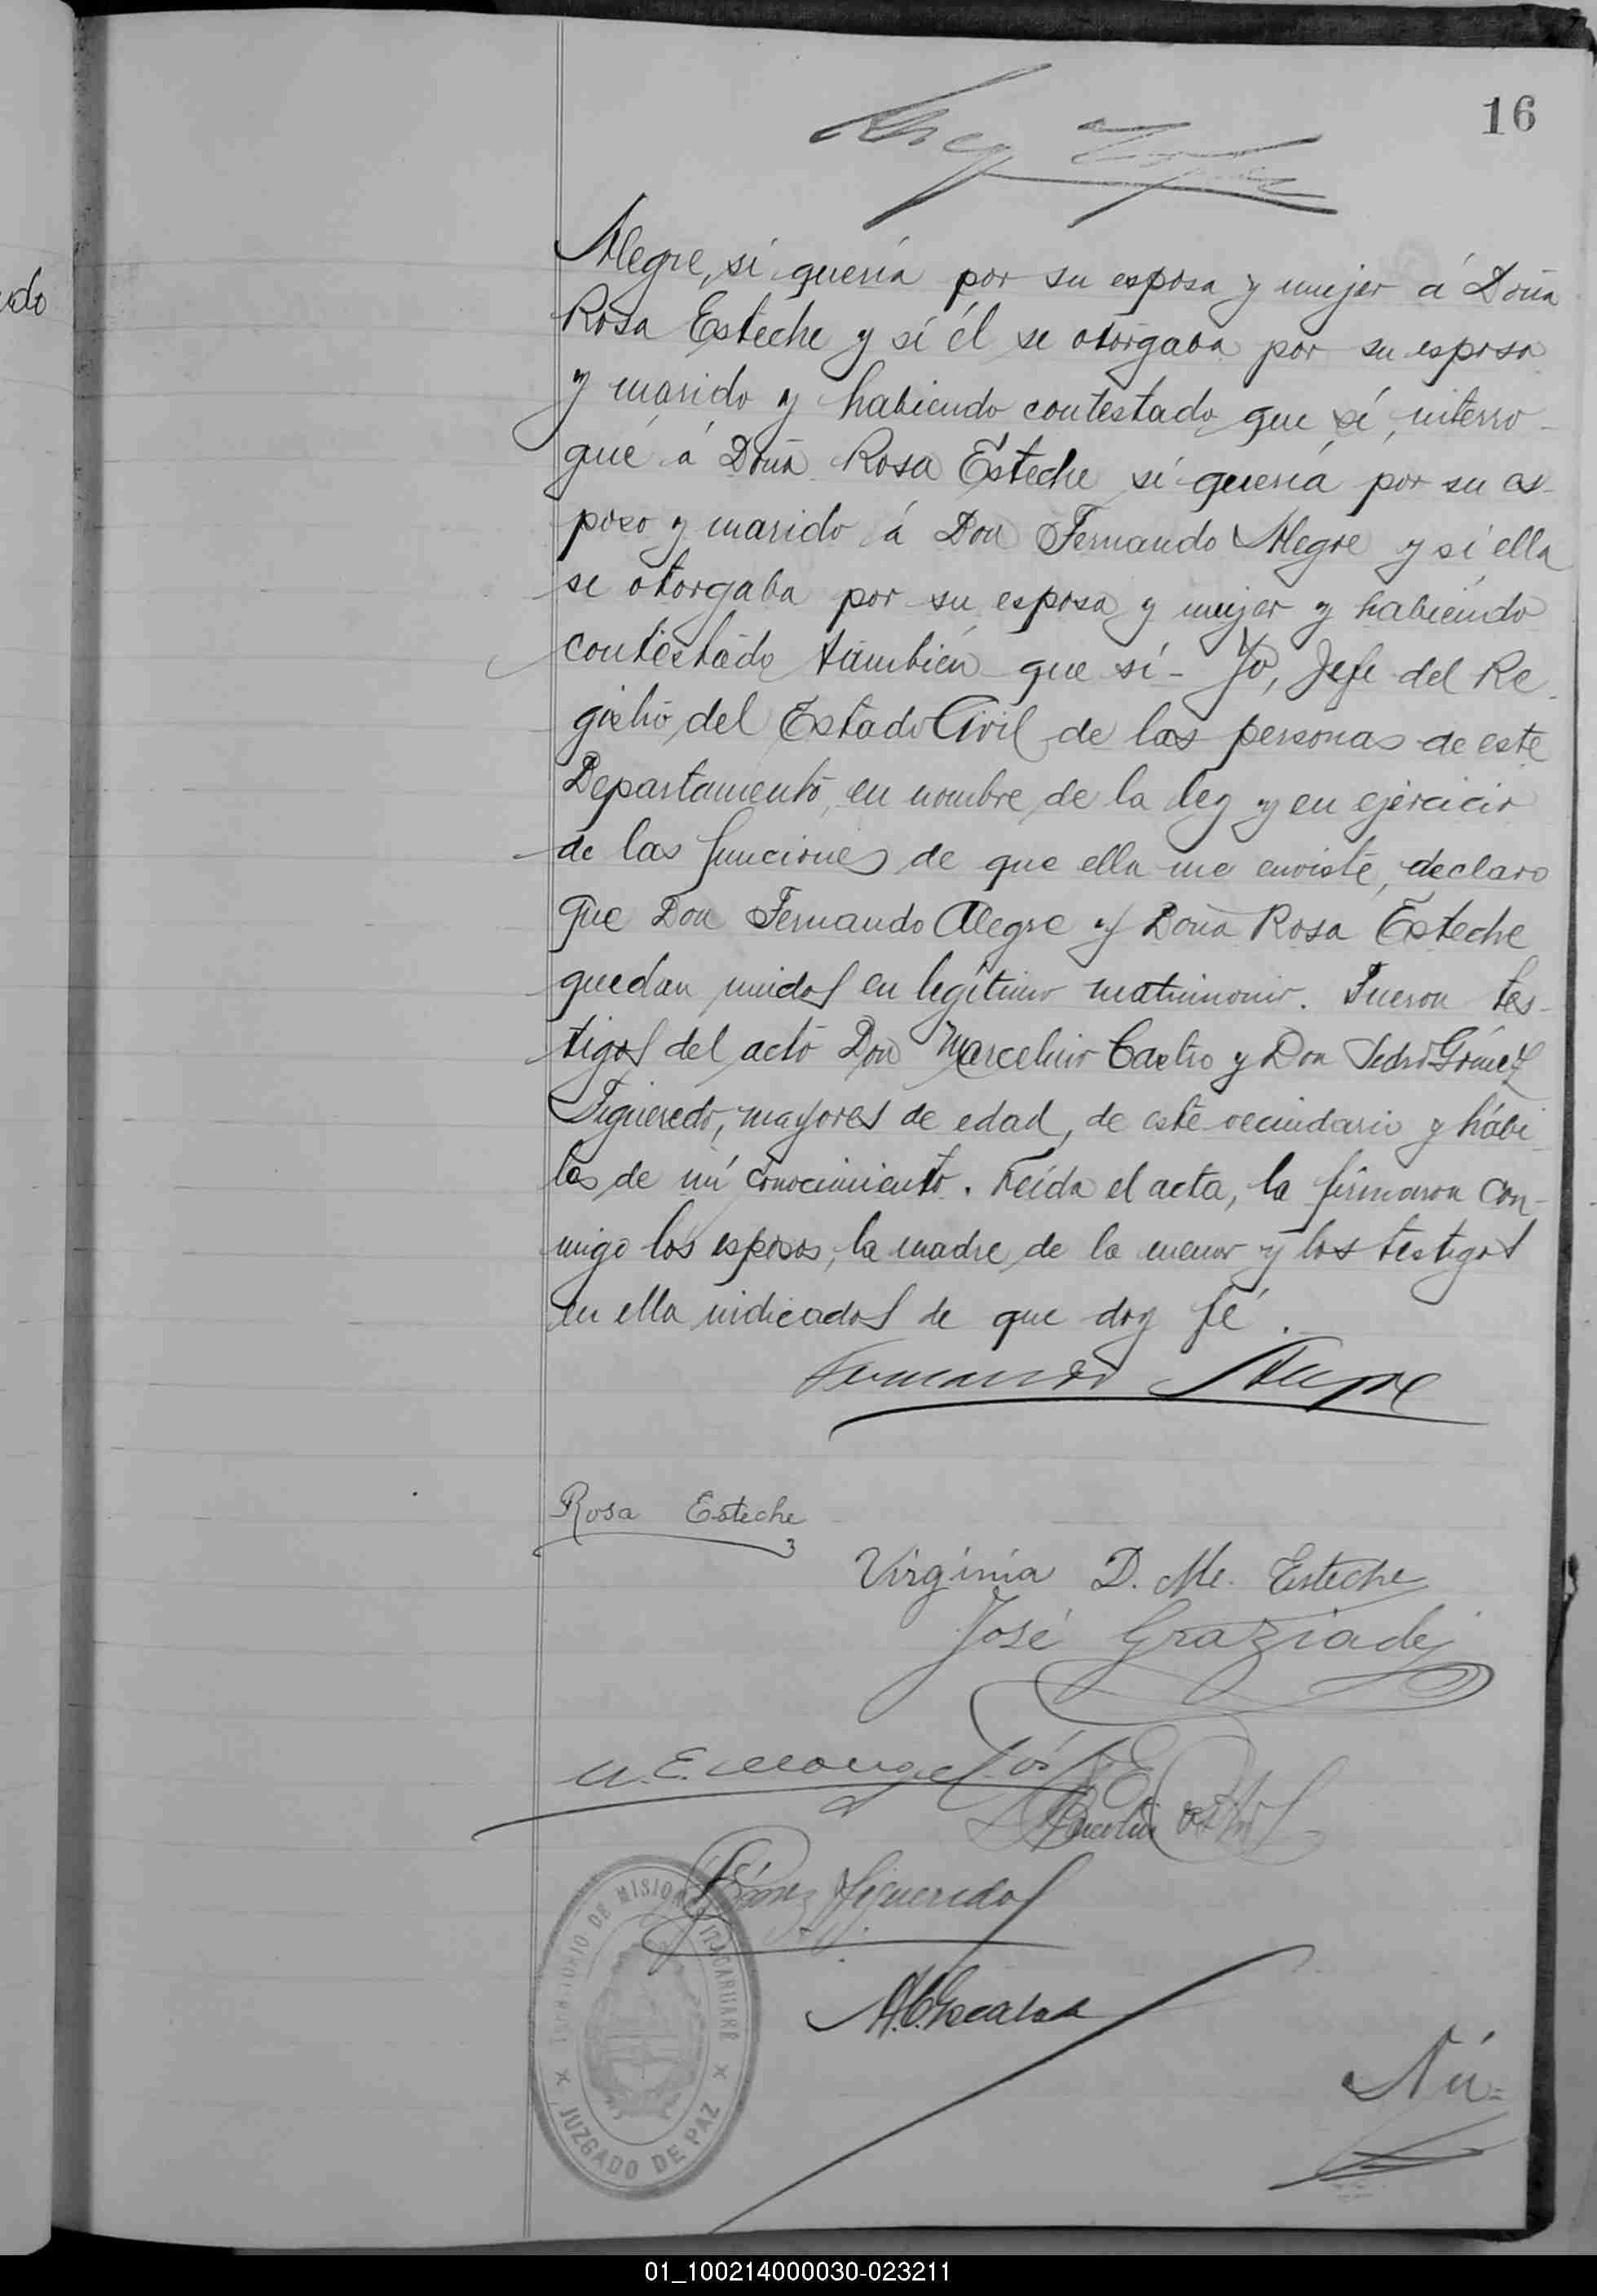 16
do
Alegre, sí quería por su esposa y mujer á Doña
Rosa Esteche y sí él se otorgaba por su esposo
y marido y habiendo contestado que sí, interro-
gué á Doña Rosa Esteche sí quería por su es-
poso y marido á Don Fernando Alegre y sí ella
se otorgaba por su esposa y mujer y habiendo
contestado también que sí - Yo, Jefe del Re-
gistro del Estado Civil de las personas de este
Departamento, en nombre de la ley y en ejercicio
de las funciones de que ella me enviste, declaro
que Don Fernando Alegre y Doña Rosa Esteche
quedan unidos en legítimo matrimonio. Fueron tes-
tigos del acto Don Marcelino Castro y Don Pedro Gómez
Figueredo, mayores de edad, de este vecindario y hábi
les de mí conocimiento. Leída el acta, la firmaron con-
migo los esposos, la madre de la menor y los testigos
en ella indicados de que doy fé.
Fernando Alegre
Rosa Esteche
Virginia D. Me. Esteche
José Graziadei
Marcelino Castro
P. Gómez Figueredo
TERRITORIO DE MISIONES ITACARUARÉ
JUZGADO DE PAZ
Nú=
01_100214000030-023211